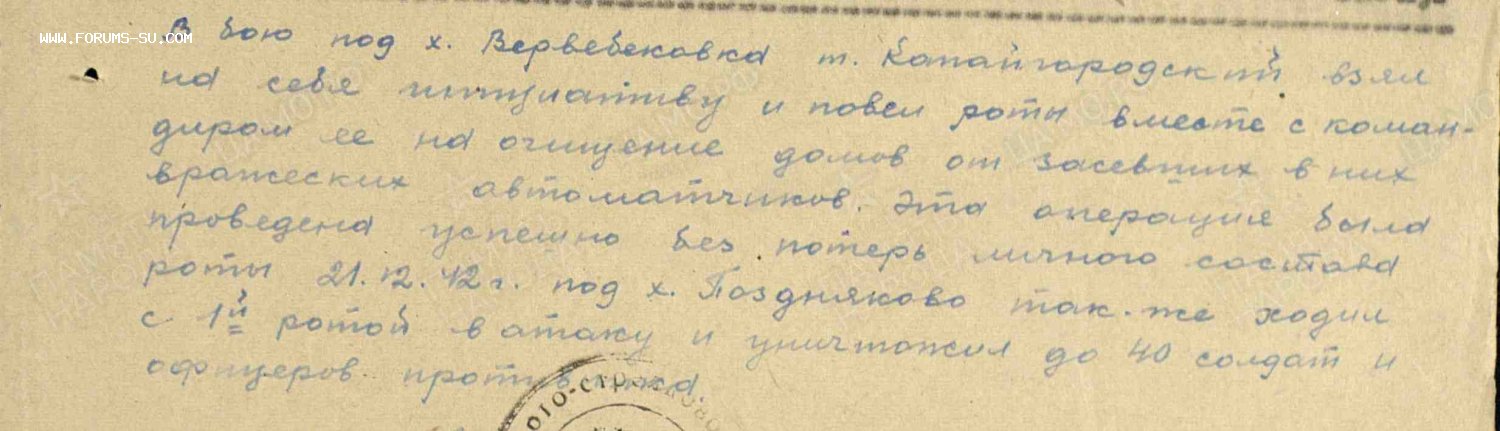 WWW.FORUMS-SU.COM
В бою под х. Вервебековка т. Копайгородский взял
на себя инициативу и повел роты вместе с коман-
диром ее на очищение домов от засевших в них
вражеских автоматчиков. Эта операция была
проведена успешно без потерь личного состава
роты 21.12.42 г. под х. Поздняково так-же ходил
с 1й ротой в атаку и уничтожил до 40 солдат и
офицеров противника.